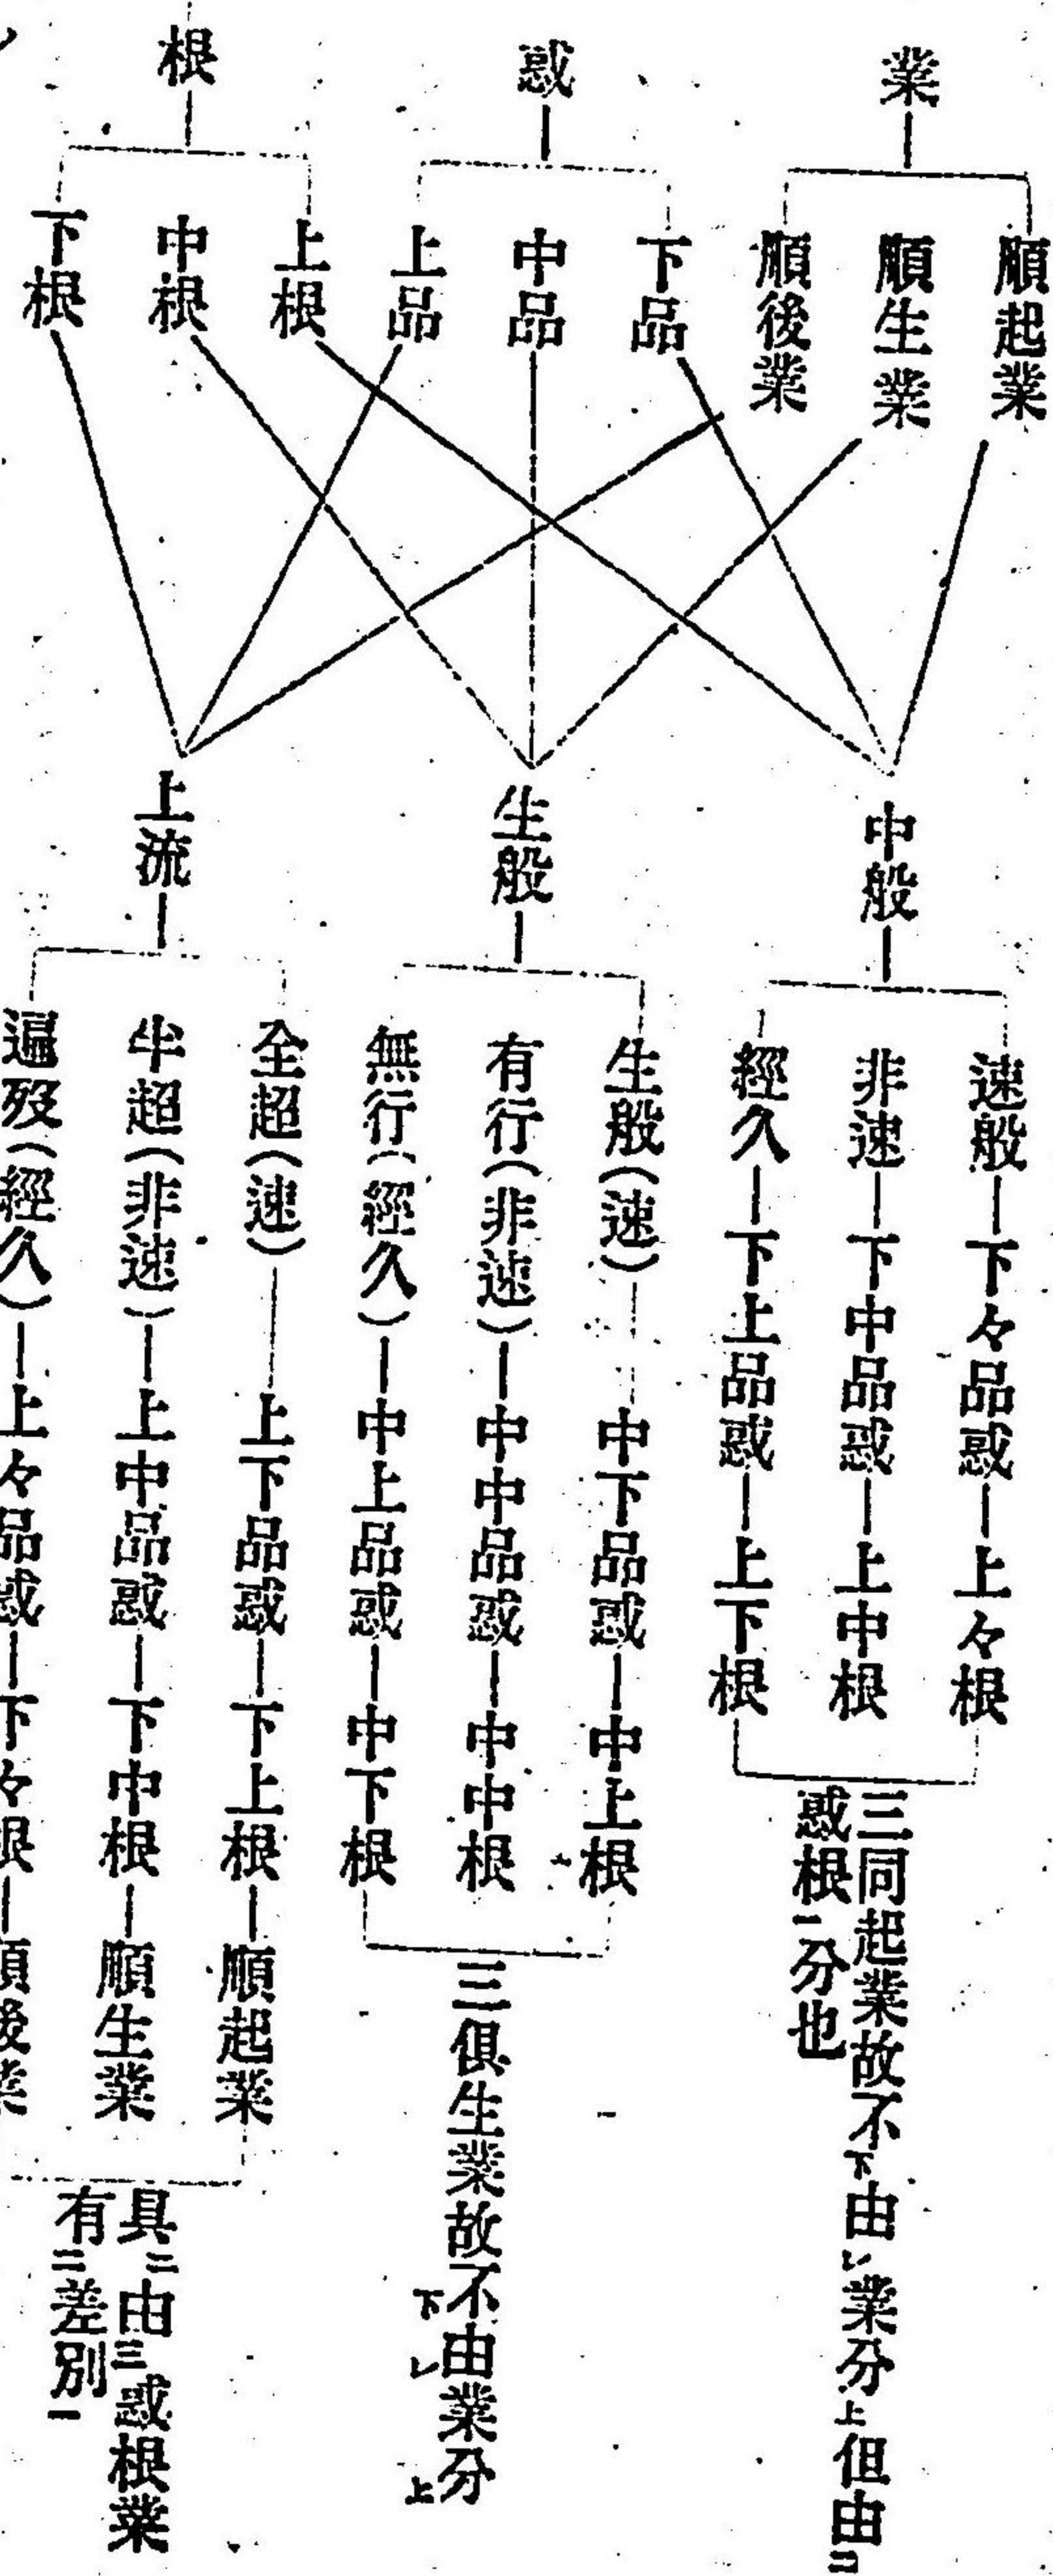 業
順起業
順生業
順後業
惑
下品
中品
上品
根
上根
中根
下根
中般
速般―下々品惑―上々根
非速―下中品惑―上中根
經久―下上品惑―上下根
三同起業故不下由レ業分上但由二
惑根一分也
生般
生般(速)―中下品惑―中上根
有行(非速)―中中品惑―中中根
無行(經久)―中上品惑―中下根
三俱生業故不下由レ業分上
上流
全超(速)―上下品惑―下上根―順起業
半超(非速)―上中品惑―下中根―順生業
遍歿(經久)―上々品惑―下々根―順後業
具二由三惑根業
有二差別一